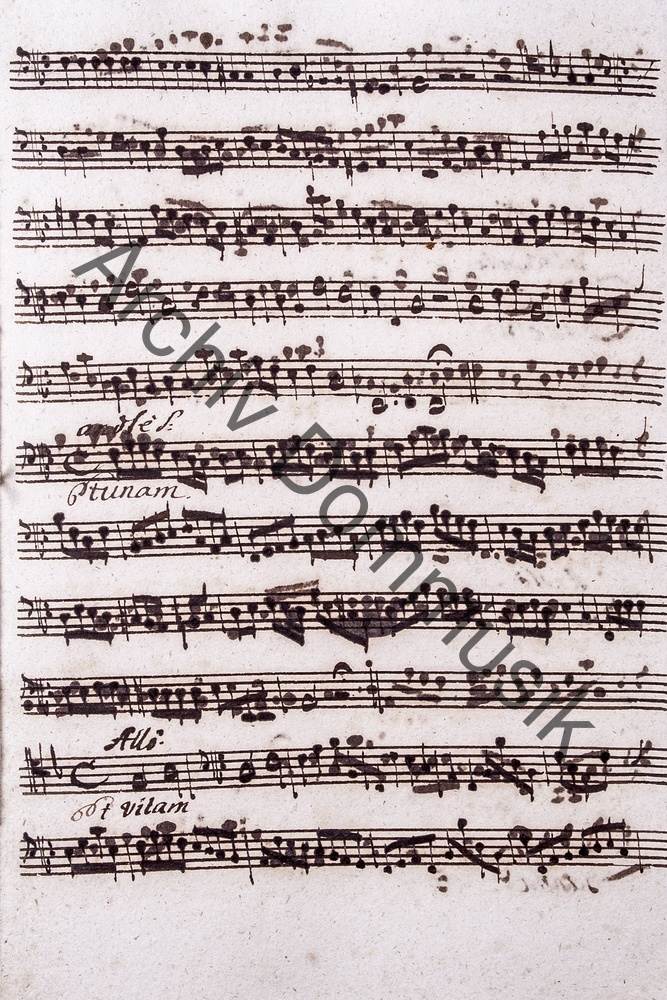 Archiv Dommusik
tunam.
Allo:
Et vitam